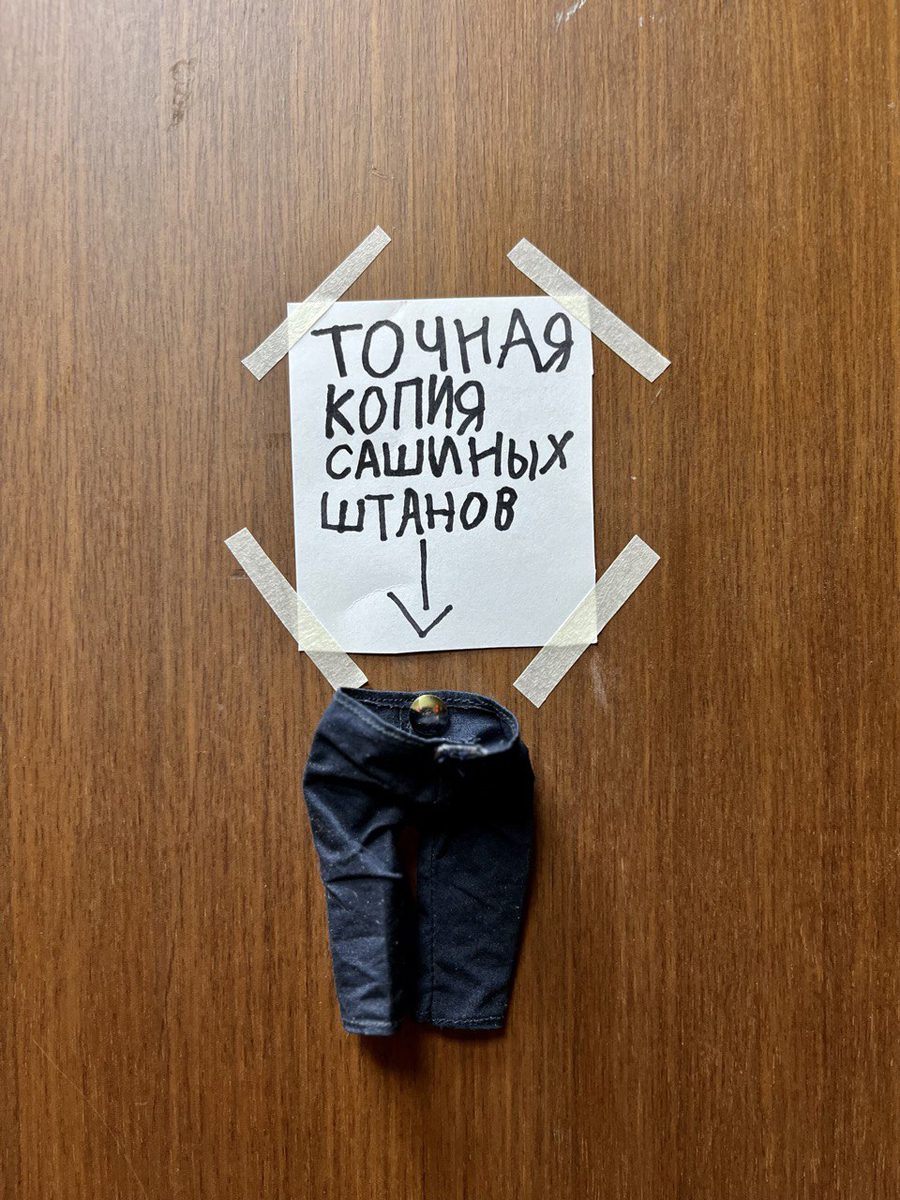 ТОЧНАЯ
КОПИЯ
САШИНЫХ
ШТАНОВ